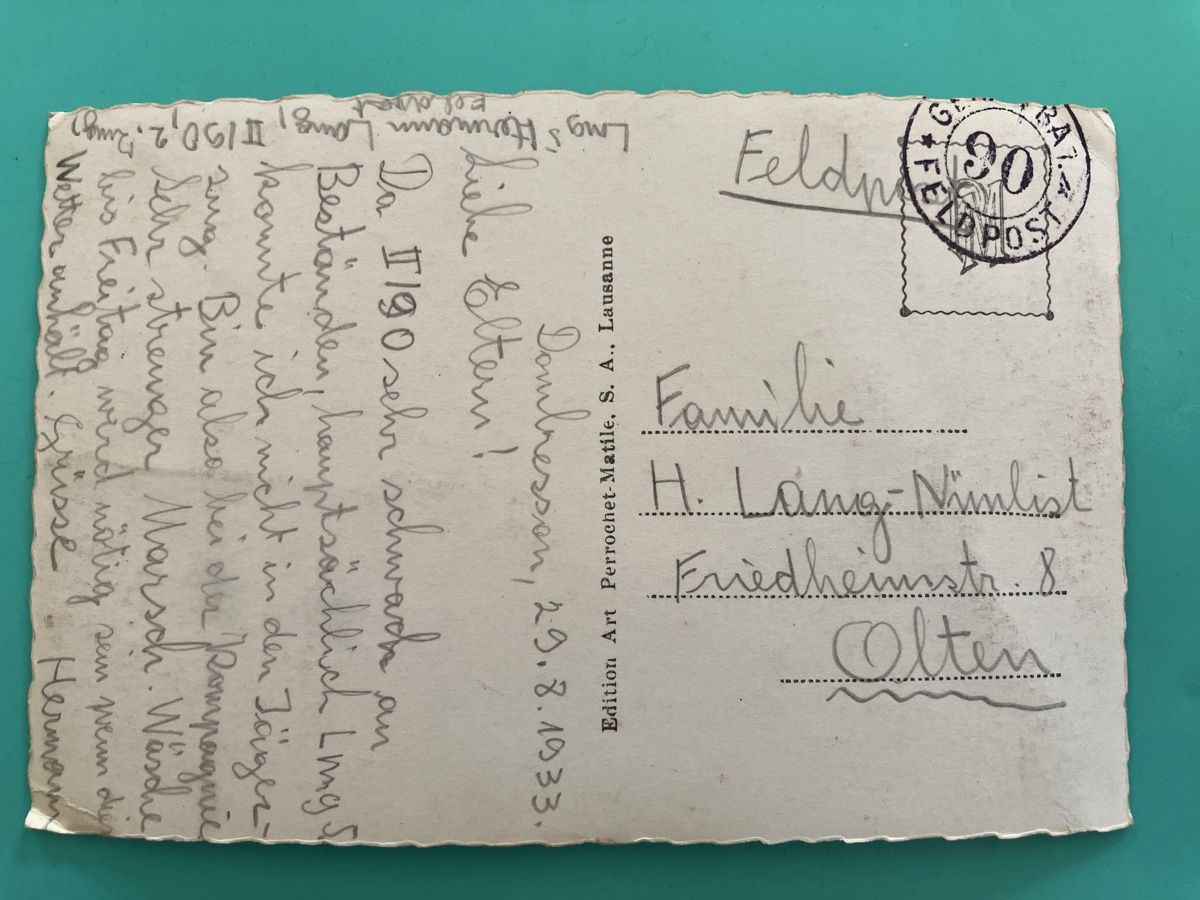 Lmg.s Hermann Lang, II/90, 2. Zug,
Feldpost
Dombresson, 29.8.1933.
Liebe Eltern!
Da II/90 sehr schwach an
Beständen, hauptsächlich Lmg.s
konnte ich nicht in den Jäger-
zug. Bin also bei der Kompagnie
Sehr strenger Marsch. Wäsche
bis Freitag wird nötig sein wenn dies
Wetter anhält. Grüsse Hermann
Edition Art Perrochet-Matile, S. A., Lausanne
Feldpost
BAT.
90
★ FELDPOST
Familie
H. Lang-Nünlist
Friedheimstr. 8
Olten